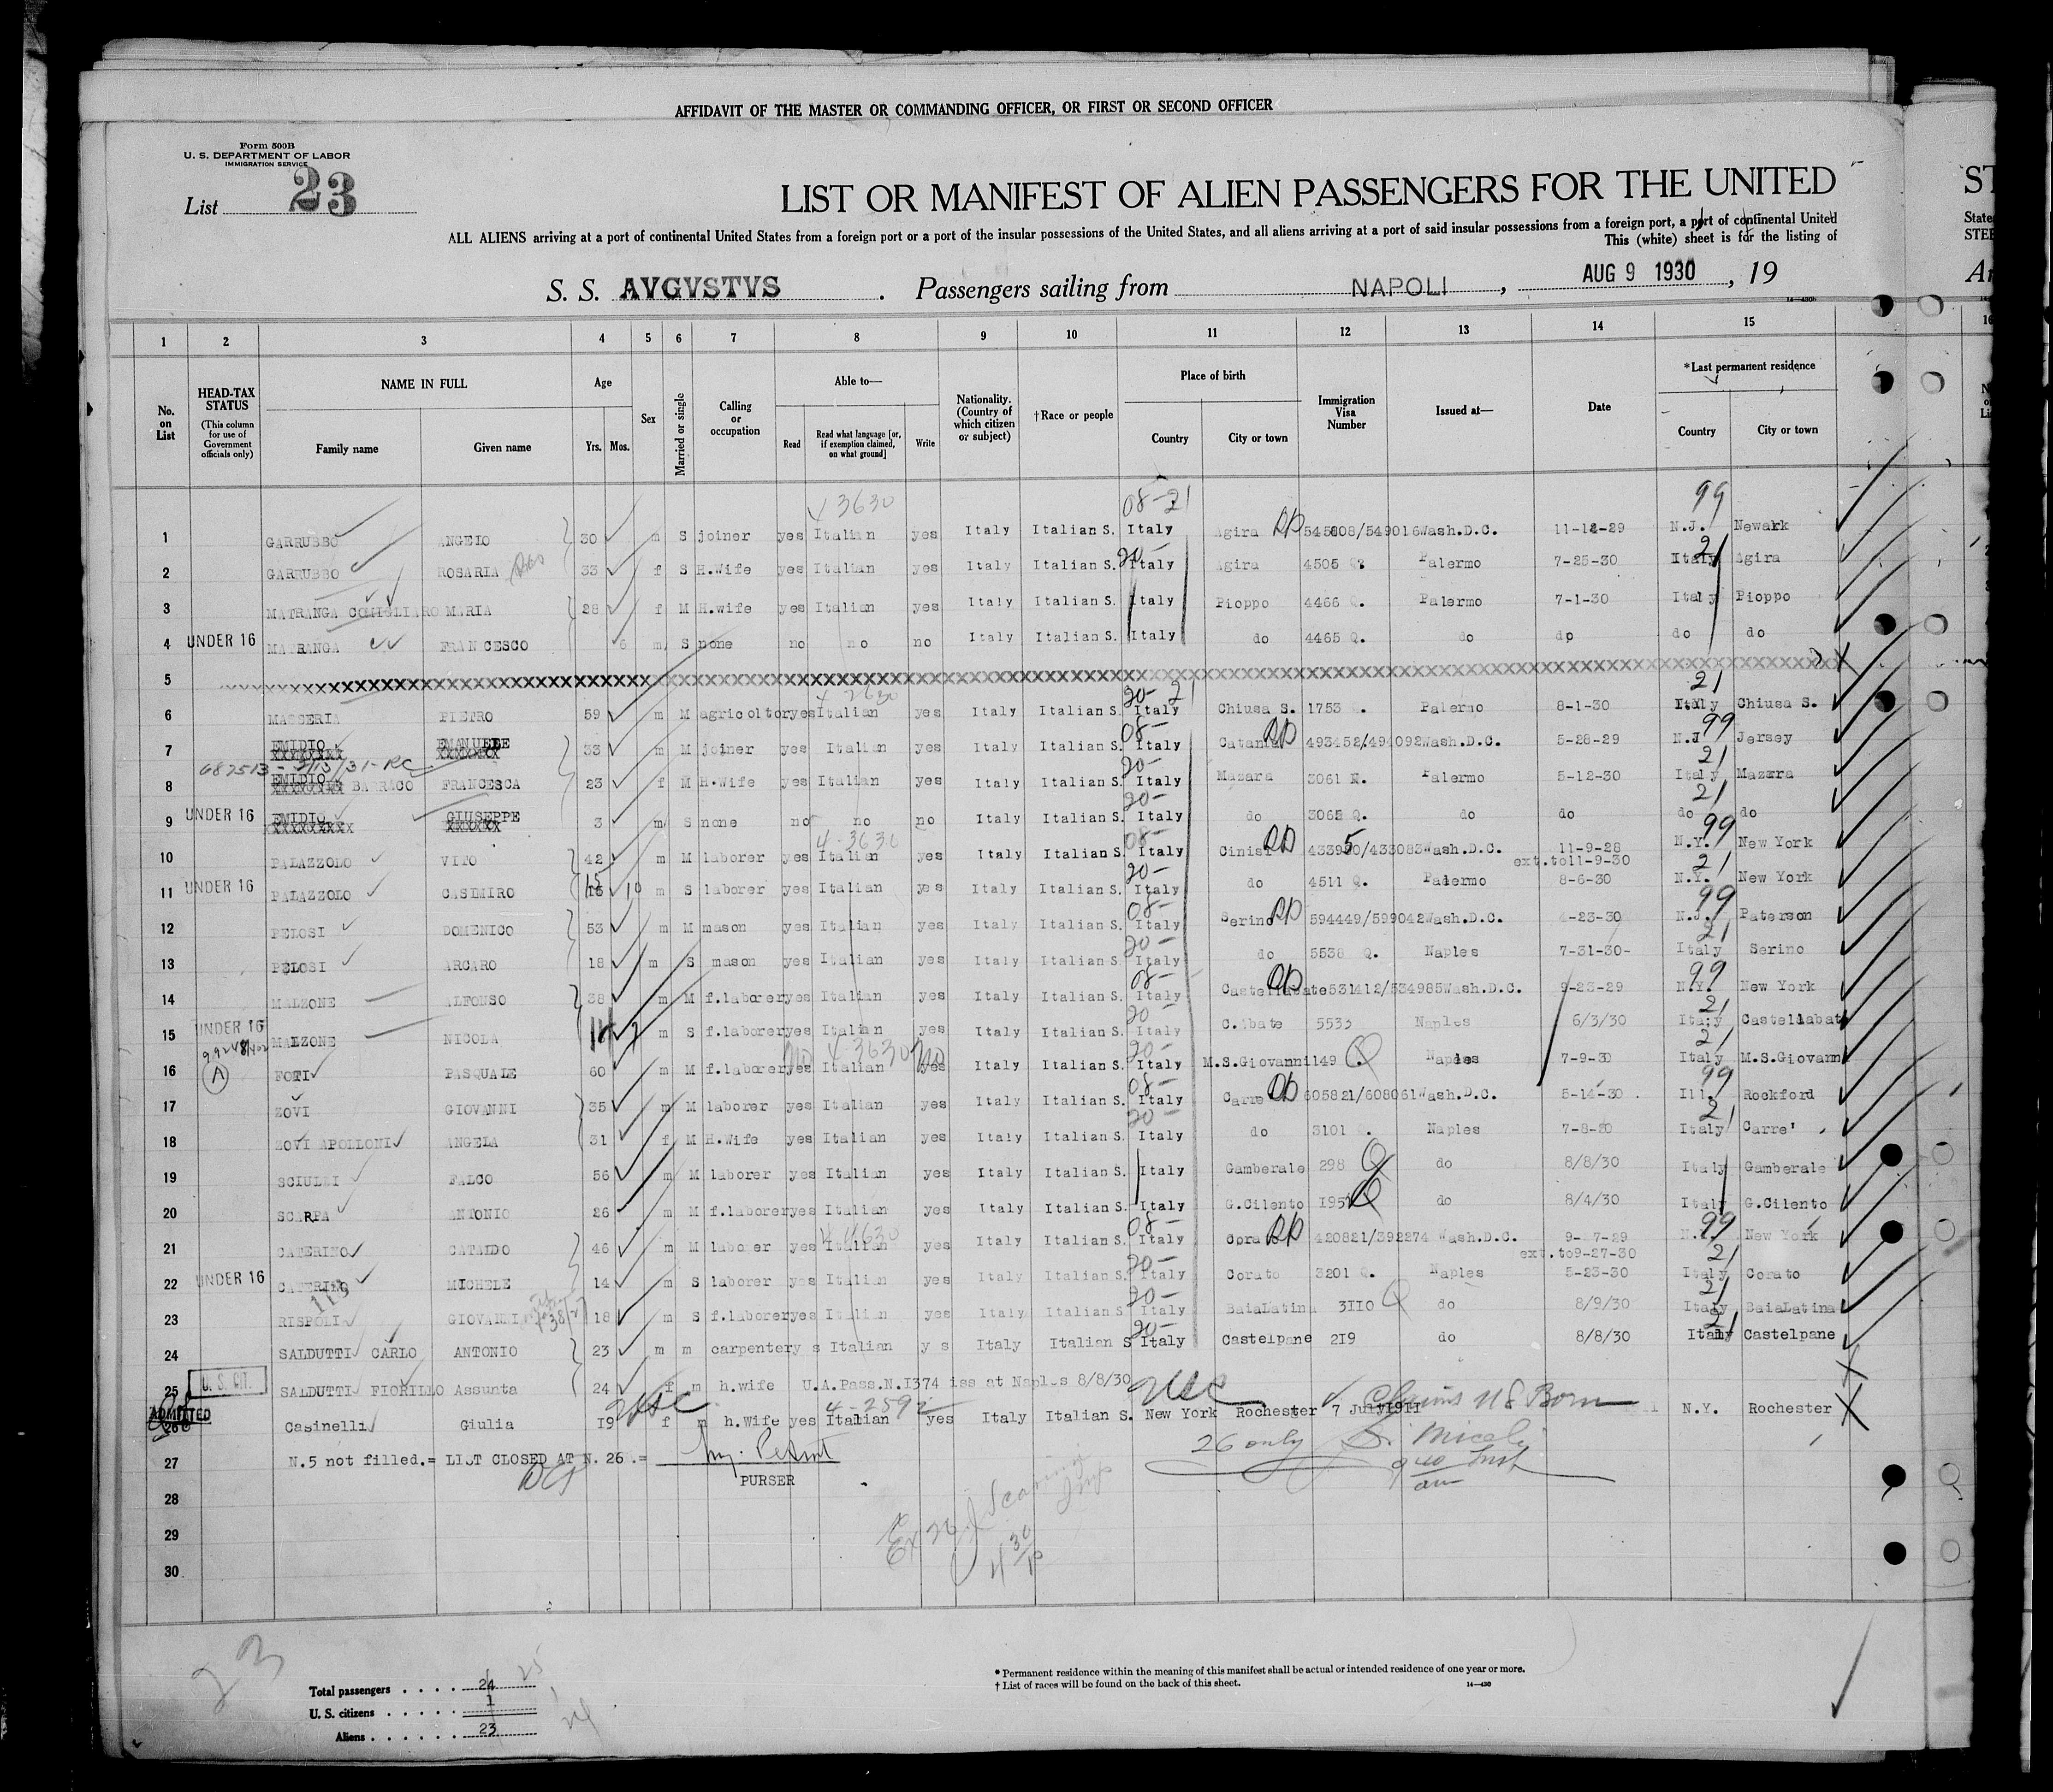 AFFIDAVIT OF THE MASTER OR COMMANDING OFFICER, OR FIRST OR SECOND OFFICER
Form 500B
U. S. DEPARTMENT OF LABOR
IMMIGRATION SERVICE
List 23
LIST OR MANIFEST OF ALIEN PASSENGERS FOR THE UNITED
ALL ALIENS arriving at a port of continental United States from a foreign port or a port of the insular possessions of the United States, and all aliens arriving at a port of said insular possessions from a foreign port, a port of continental United
This (white) sheet is for the listing of
S. S. AVGVSTVS . Passengers sailing from NAPOLI , AUG 9 1930 , 19
1 2 3 4 5 6 7 8 9 10 11 12 13 14 15
No. on List HEAD-TAX STATUS (This column for use of Government officials only) NAME IN FULL Family name Given name Age Yrs. Mos. Sex Married or single Calling or occupation Able to— Read Read what language [or, if exemption claimed, on what ground] Write Nationality. (Country of which citizen or subject) †Race or people Place of birth Country City or town Immigration Visa Number Issued at— Date *Last permanent residence Country City or town
4 3630 08-21 99
1 GARRUBBO ANGELO 30 m S joiner yes Italian yes Italy Italian S. Italy Agira 549016 Wash.D.C. N.J. Newark
2 GARRUBBO ROSARIA 33 f S H.Wife yes Italian yes Italy Italian S. 20- Italy Agira 4505 Palermo 7-25-30 Italy 21 Agira
3 MATRANGA COMIGLIARO MARIA 28 f M H.wife yes Italian yes Italy Italian S. Italy Pioppo 4466 Q. Palermo 7-1-30 Italy Pioppo
4 UNDER 16 MATRANGA FRANCESCO 6 m S none no no no Italy Italian S. Italy do 4465 Q. do do do do
5
6 MASSERIA PIETRO 59 m M agricoltor yes Italian yes Italy Italian S. 20-21 Italy Chiusa S. 1753 Palermo 8-1-30 21 Italy Chiusa S.
7 EMIDIO EMANUELE 33 m M joiner yes Italian yes Italy Italian S. 08- Italy Catania 493452/494092 Wash.D.C. 5-28-29 N.J 99 Jersey
8 EMIDIO BARRACO FRANCESCA 23 f M H.Wife yes Italian yes Italy Italian S. 20- Italy Mazara 3061 N. Palermo 5-12-30 Italy 21 Mazara
9 UNDER 16 EMIDIO GIUSEPPE 3 m S none no no no Italy Italian S. 20- Italy do 3065 Q. do do do 21 do
4-3630
10 PALAZZOLO VITO 42 m M laborer yes Italian yes Italy Italian S. 08- Italy Cinisi /433083 Wash.D.C. 11-9-28 N.Y. 99 New York
ext.to11-9-30
11 UNDER 16 PALAZZOLO CASIMIRO 15 10 m S laborer yes Italian yes Italy Italian S. 20- Italy do 4511 Q. Palermo 8-6-30 N.Y. 21 New York
12 PELOSI DOMENICO 53 m M mason yes Italian yes Italy Italian S. 08- Italy Serino 594449/599042 Wash.D.C. 4-23-30 N.J. 99 Paterson
13 PELOSI ARCARO 18 m S mason yes Italian yes Italy Italian S. 20- Italy do 5538 Q. Naples 7-31-30- Italy 21 Serino
14 MALZONE ALFONSO 38 m M f.laborer yes Italian yes Italy Italian S. 08- Italy Castellabate 531412/534985 Wash.D.C. 9-23-29 N.Y. 99 New York
15 UNDER 16 MALZONE NICOLA m S f.laborer yes Italian yes Italy Italian S. 20- Italy C.ibate Naples 6/3/30 Italy 21 Castellabat
4 3630
16 A FOTI PASQUALE 60 m M f.laborer yes no Italian yes no Italy Italian S. 20- Italy M.S.Giovanni 149 Q Naples 7-9-30 Italy 21 M.S.Giovann
17 ZOVI GIOVANNI 35 m M laborer yes Italian yes Italy Italian S. 08- Italy Carre 605821/608061 Wash.D.C. 5-14-30 Ill. 99 Rockford
18 ZOVI APOLLONI ANGELA 31 f M H.Wife yes Italian yes Italy Italian S. 20- Italy do 3101 Naples 7-8-20 Italy 21 Carre'
19 SCIULLI FALCO 56 m M laborer yes Italian yes Italy Italian S. Italy Gamberale 298 Q do 8/8/30 Italy Gamberale
20 SCARPA ANTONIO 26 m M f.laborer yes Italian yes Italy Italian S. Italy G.Cilento Q do 8/4/30 Italy G.Cilento
21 CATERINO CATALDO 46 m M laborer yes Italian yes Italy Italian S. 08- Italy Corato 420821/392274 Wash.D.C. 9-27-29 99 New York
ext.to9-27-30
22 UNDER 16 CATERINO MICHELE 14 m S laborer yes Italian yes Italy Italian S. 20- Italy Corato 3201 Q. Naples 5-23-30 Italy 21 Corato
23 RISPOLI GIOVANNI 18 m S f.laborer yes Italian yes Italy Italian S 20- Italy BaiaLatina 3110 Q do 8/9/30 Italy 21 BaiaLatina
24 SALDUTTI CARLO ANTONIO 23 m m carpenter y s Italian y s Italy Italian S 20- Italy Castelpane 219 do 8/8/30 Italy 21 Castelpane
25 U. S. CIT. SALDUTTI FIORILLO Assunta 24 f m h.wife U.A.Pass.N.I374 iss at Naples 8/8/30 USC
26 ADMITTED Casinelli Giulia 19 f m h.Wife yes Italian yes Italy Italian S. New York Rochester 7 July 1911 Claims US Born N.Y. Rochester
27 N.5 not filled.= LIST CLOSED AT N. 26 .=
PURSER
26 only
28
29
30
23
Total passengers . . . . 24 25
U. S. citizens . . . . . 1
Aliens . . . . . . 23
* Permanent residence within the meaning of this manifest shall be actual or intended residence of one year or more.
† List of races will be found on the back of this sheet.
14—430